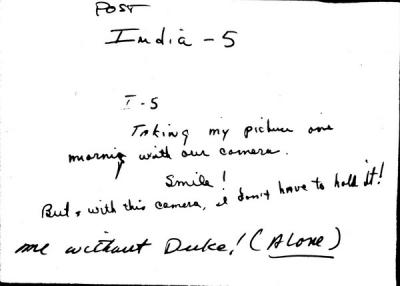 POST
India - 5
I - 5
Taking my picture one
morning with our camera.
Smile!
But, with this camera, I don't have to hold it!
me without Duke! (ALONE)